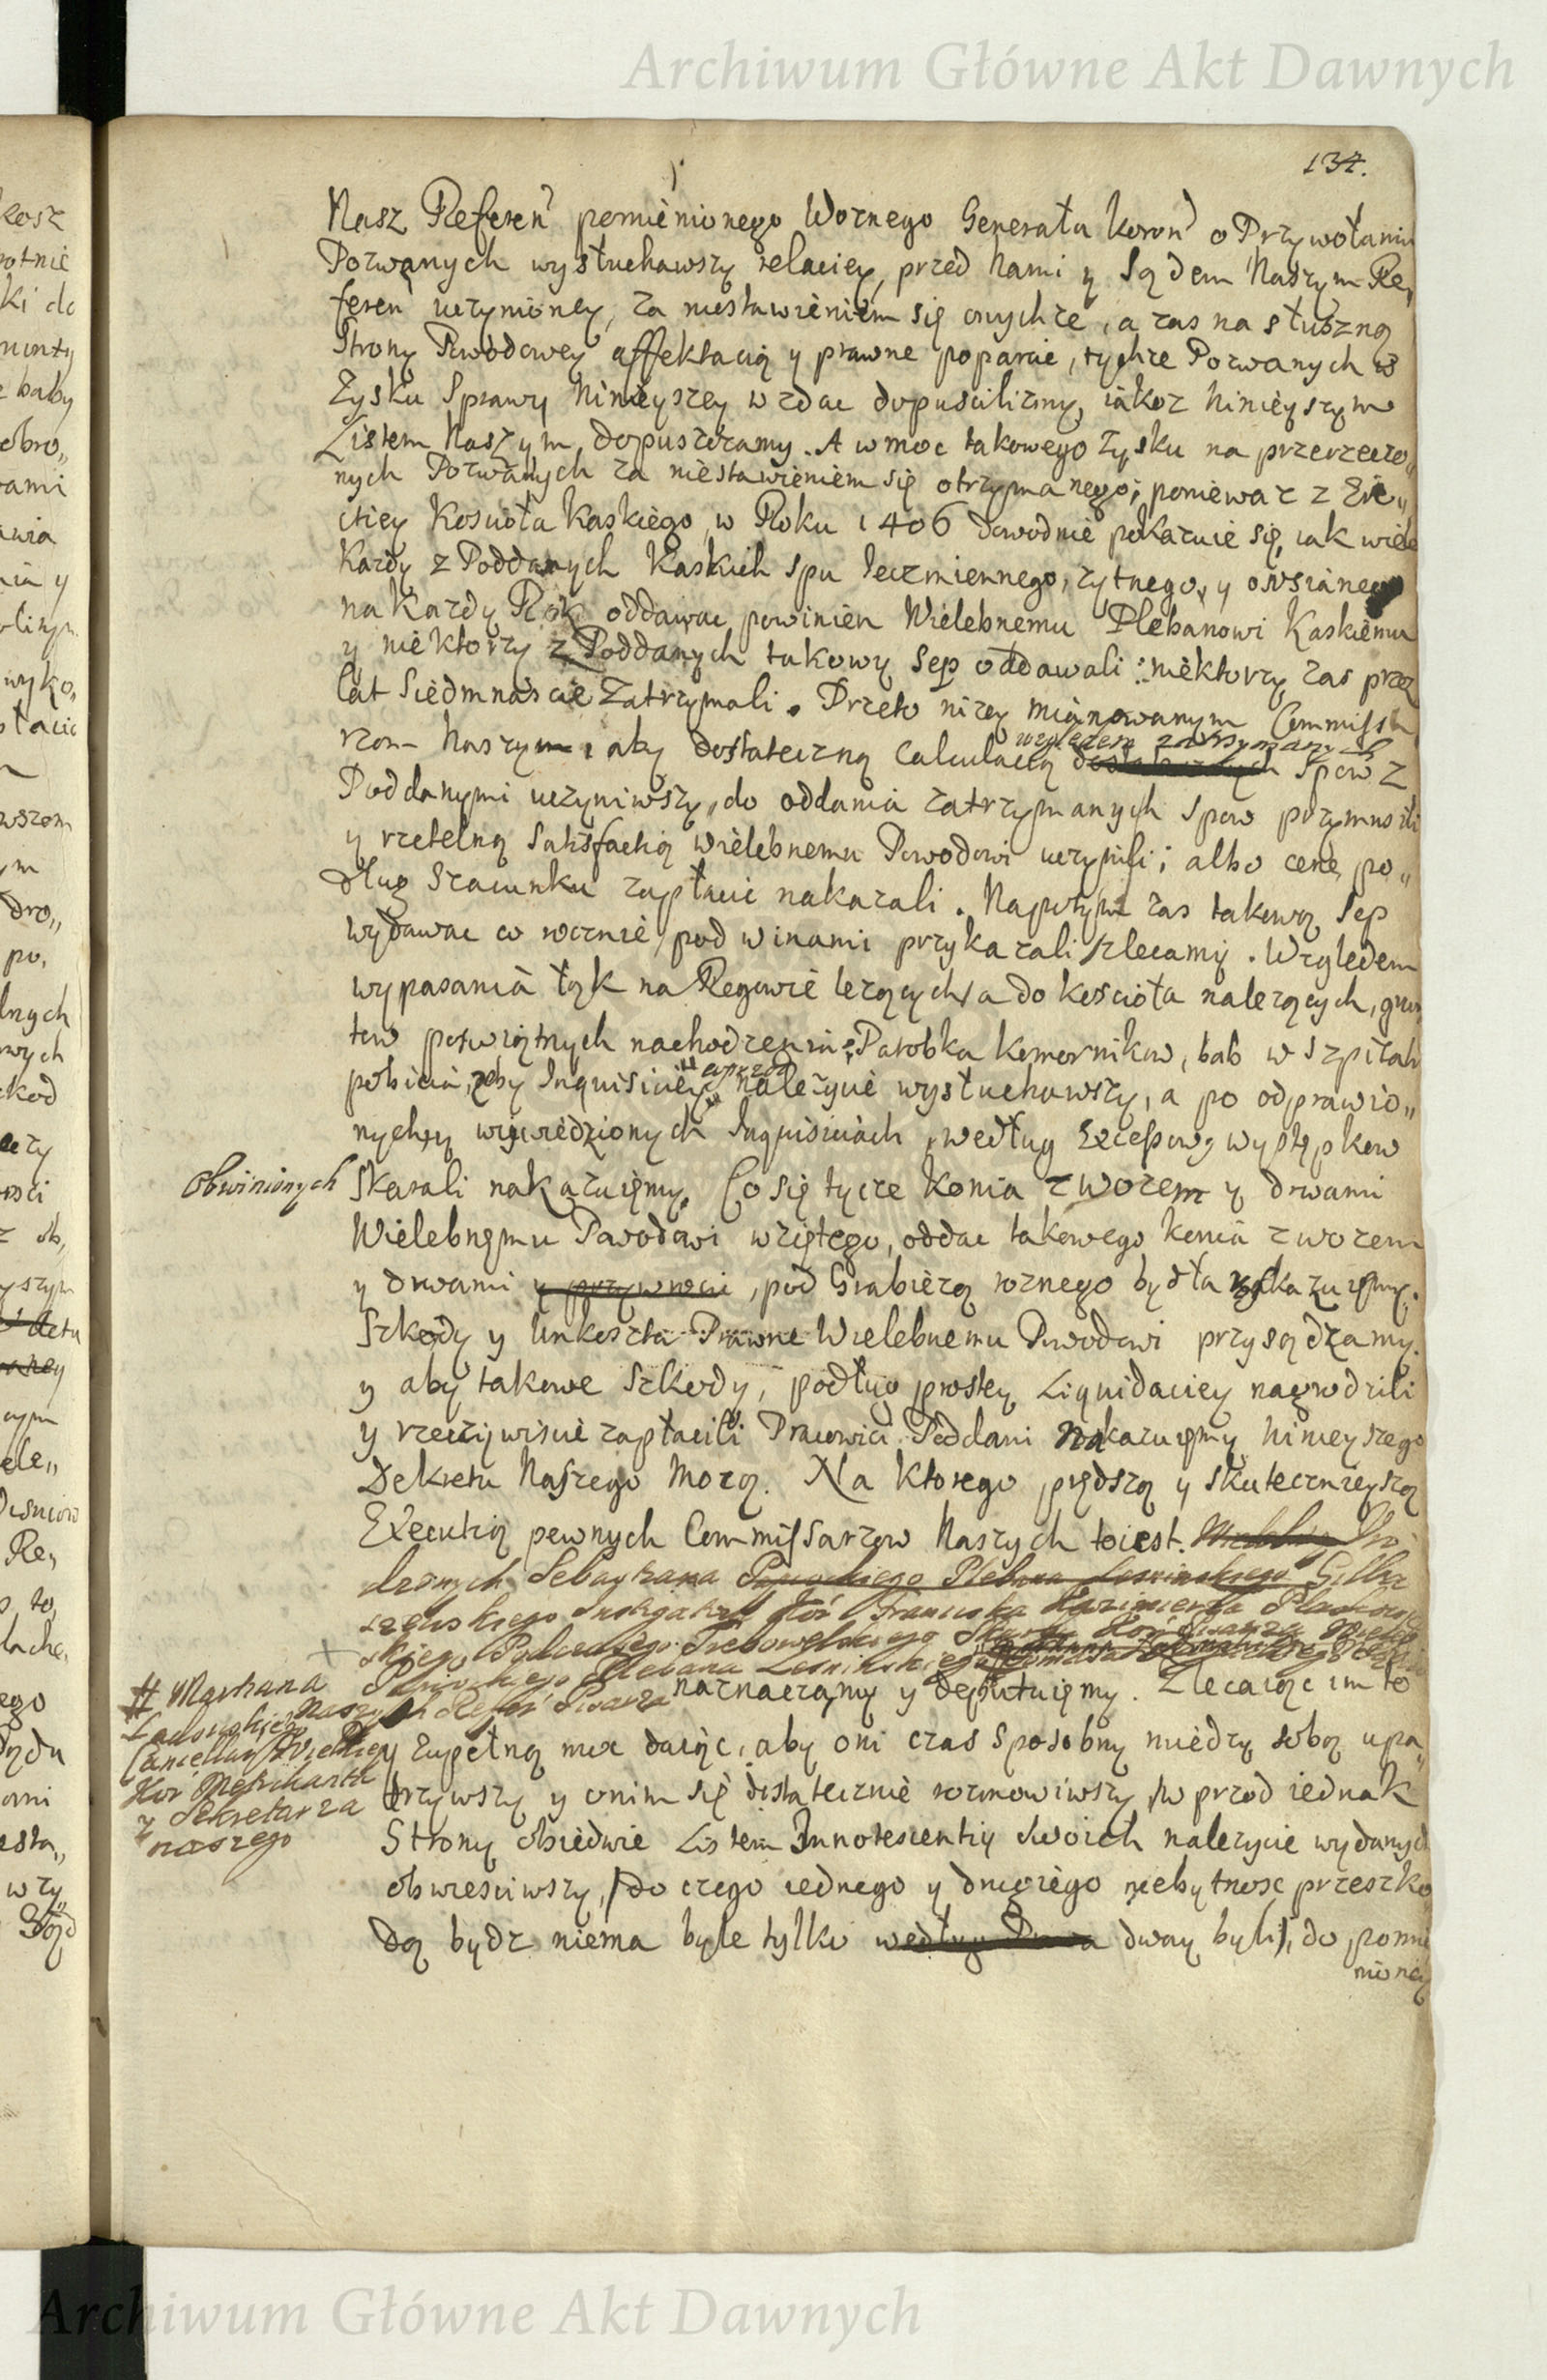 Archiwum Główne Akt Dawnych
134.
Nasz Referen pomienionego Woznego Generała Koron o Przywołaniu
Pozwanych wysłuchawszy relaciey, przed Nami y Sądem Naszym Re„
feren uczynioney, za niestawieniem się onychze, a zas na słuszną
Strony Powodowey affektacią y prawne poparcie, tychze Pozwanych w
Zysku Sprawy Ninieyszey wzdac dopuscilizmy, iakoz Ninieyszym
Listem Naszym dopuszczamy. A w moc takowego zysku na przerzeczo„
nych Pozwanych za niestawieniem się otrzymanego; poniewaz z Ere„
ctiey Koscioła Kaskiego w Roku 1406 dowodnie pokazuie się, iak wiele
Kazdy z Poddanych Kaskich spu Ieczmiennego, zytnego, y owsianego
na Kazdy Rok oddawac powinien Wielebnemu Plebanowi Kaskiemu
y niektorzy z Poddanych takowy Sep oddawali: niektorzy zas przez
lat Siedmnascie Zatrzymali. Przeto nizey mianowanym Commissa
rzom Naszym, aby dostateczną Calculacią
względem zatrzymanych
Spow z
Poddanymi uczyniwszy, do oddania zatrzymanych Spow przymusili
y rzetelną Satisfactią Wielebnemu Powodowi uczynili; albo cenę po„
dług Szacunku zapłacic nakazali. Napotym zas takowy Sep
wydawac co rocznie pod winami przykazali zlecamy. Względem
wypasania łąk na Regowie lezących, a do koscioła nalezących, grun
tow poswiątnych nachodzenia, Parobka Komornikow, bab w szpitalu
pobicia, zeby Inquisicie
wprzod
nalezycie wysłuchawszy, a po odprawio„
nych y wywiedzionych Inquisiciach, według Excessow, wystąpkow
obwinionych
Skarali nakazuiemy. Co się tycze Konia z wozem y drwami
Wielebnemu Powodowi wziętego, oddac takowego konia z wozem
y drwami y przywrocic, pod Grabiezą roznego bydła nakazuiemy.
Szkody y Unkoszta Prawne Wielebnemu Powodowi przysądzamy.
y aby takowe Szkody, podług prostey Liquidaciey nagrodzili
y rzeczywiscie zapłacili Pracowici Poddani Nakazuiemy Ninieyszego
Dekretu Naszego Mocą. Na ktorego prędszą y skutecznieyszą
Executią pewnych Commissarzow Naszych toiest.
dzonych Sebastyana Plebana Lesninskiego
Instygatora Kor Franciszka Kazimierza
skiego Trebowelskiego Skarbu Kor Pisarza
Plebana Lesninskiego
Naszych Refer Pisarza
naznaczamy y deputuiemy. Zlecaiąc im to
# Marhana
Ladowskiego
Cancellaryi Wielkiey
Kor Metrikanta
y Sekretarza
naszego
y Zupełną moc daiąc, aby oni czas sposobny miedzy sobą upa„
trzywszy y onim się dostatecznie rozmowiwszy, wprzod iednak
Strony obiedwie Listem Innotescentiy swoich nalezycie wydanych
obwiesciwszy, (do czego iednego y drugiego niebytnosc przeszko
dą bydz niema byle tylko według Prawa dway byli), do pomie
nioney
Archiwum Główne Akt Dawnych